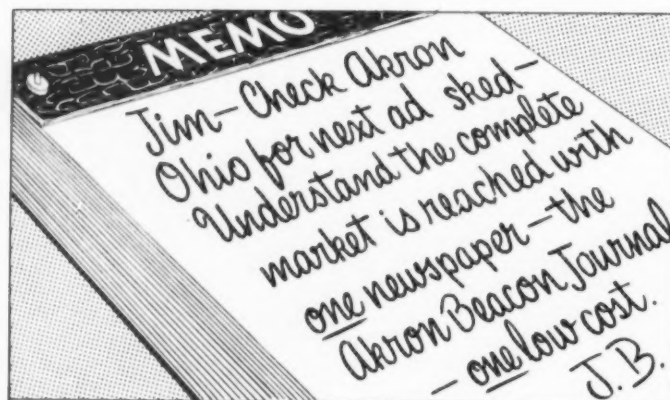 MEMO
Jim — Check Akron
Ohio for next ad sked —
Understand the complete
market is reached with
one newspaper — the
Akron Beacon Journal
— one low cost.
J.B.